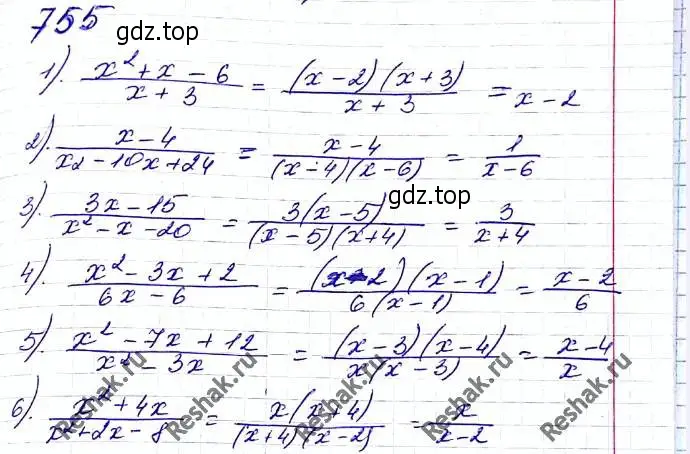 755
gdz.top
1). (x² + x − 6)/(x + 3) = ((x − 2)(x + 3))/(x + 3) = x − 2
2). (x − 4)/(x2 − 10x + 24) = (x − 4)/((x − 4)(x − 6)) = 1/(x − 6)
3). (3x − 15)/(x² − x − 20) = (3(x − 5))/((x − 5)(x + 4)) = 3/(x + 4)
gdz.top
4). (x² − 3x + 2)/(6x − 6) = ((x − 2)(x − 1))/(6(x − 1)) = (x − 2)/6
5). (x² − 7x + 12)/(x² − 3x) = ((x − 3)(x − 4))/(x(x − 3)) = (x − 4)/x
6). (x² + 4x)/(x² + 2x − 8) = (x(x + 4))/((x + 4)(x − 2)) = x/(x − 2)
Reshak.ru
Reshak.ru
Reshak.ru
Reshak.ru